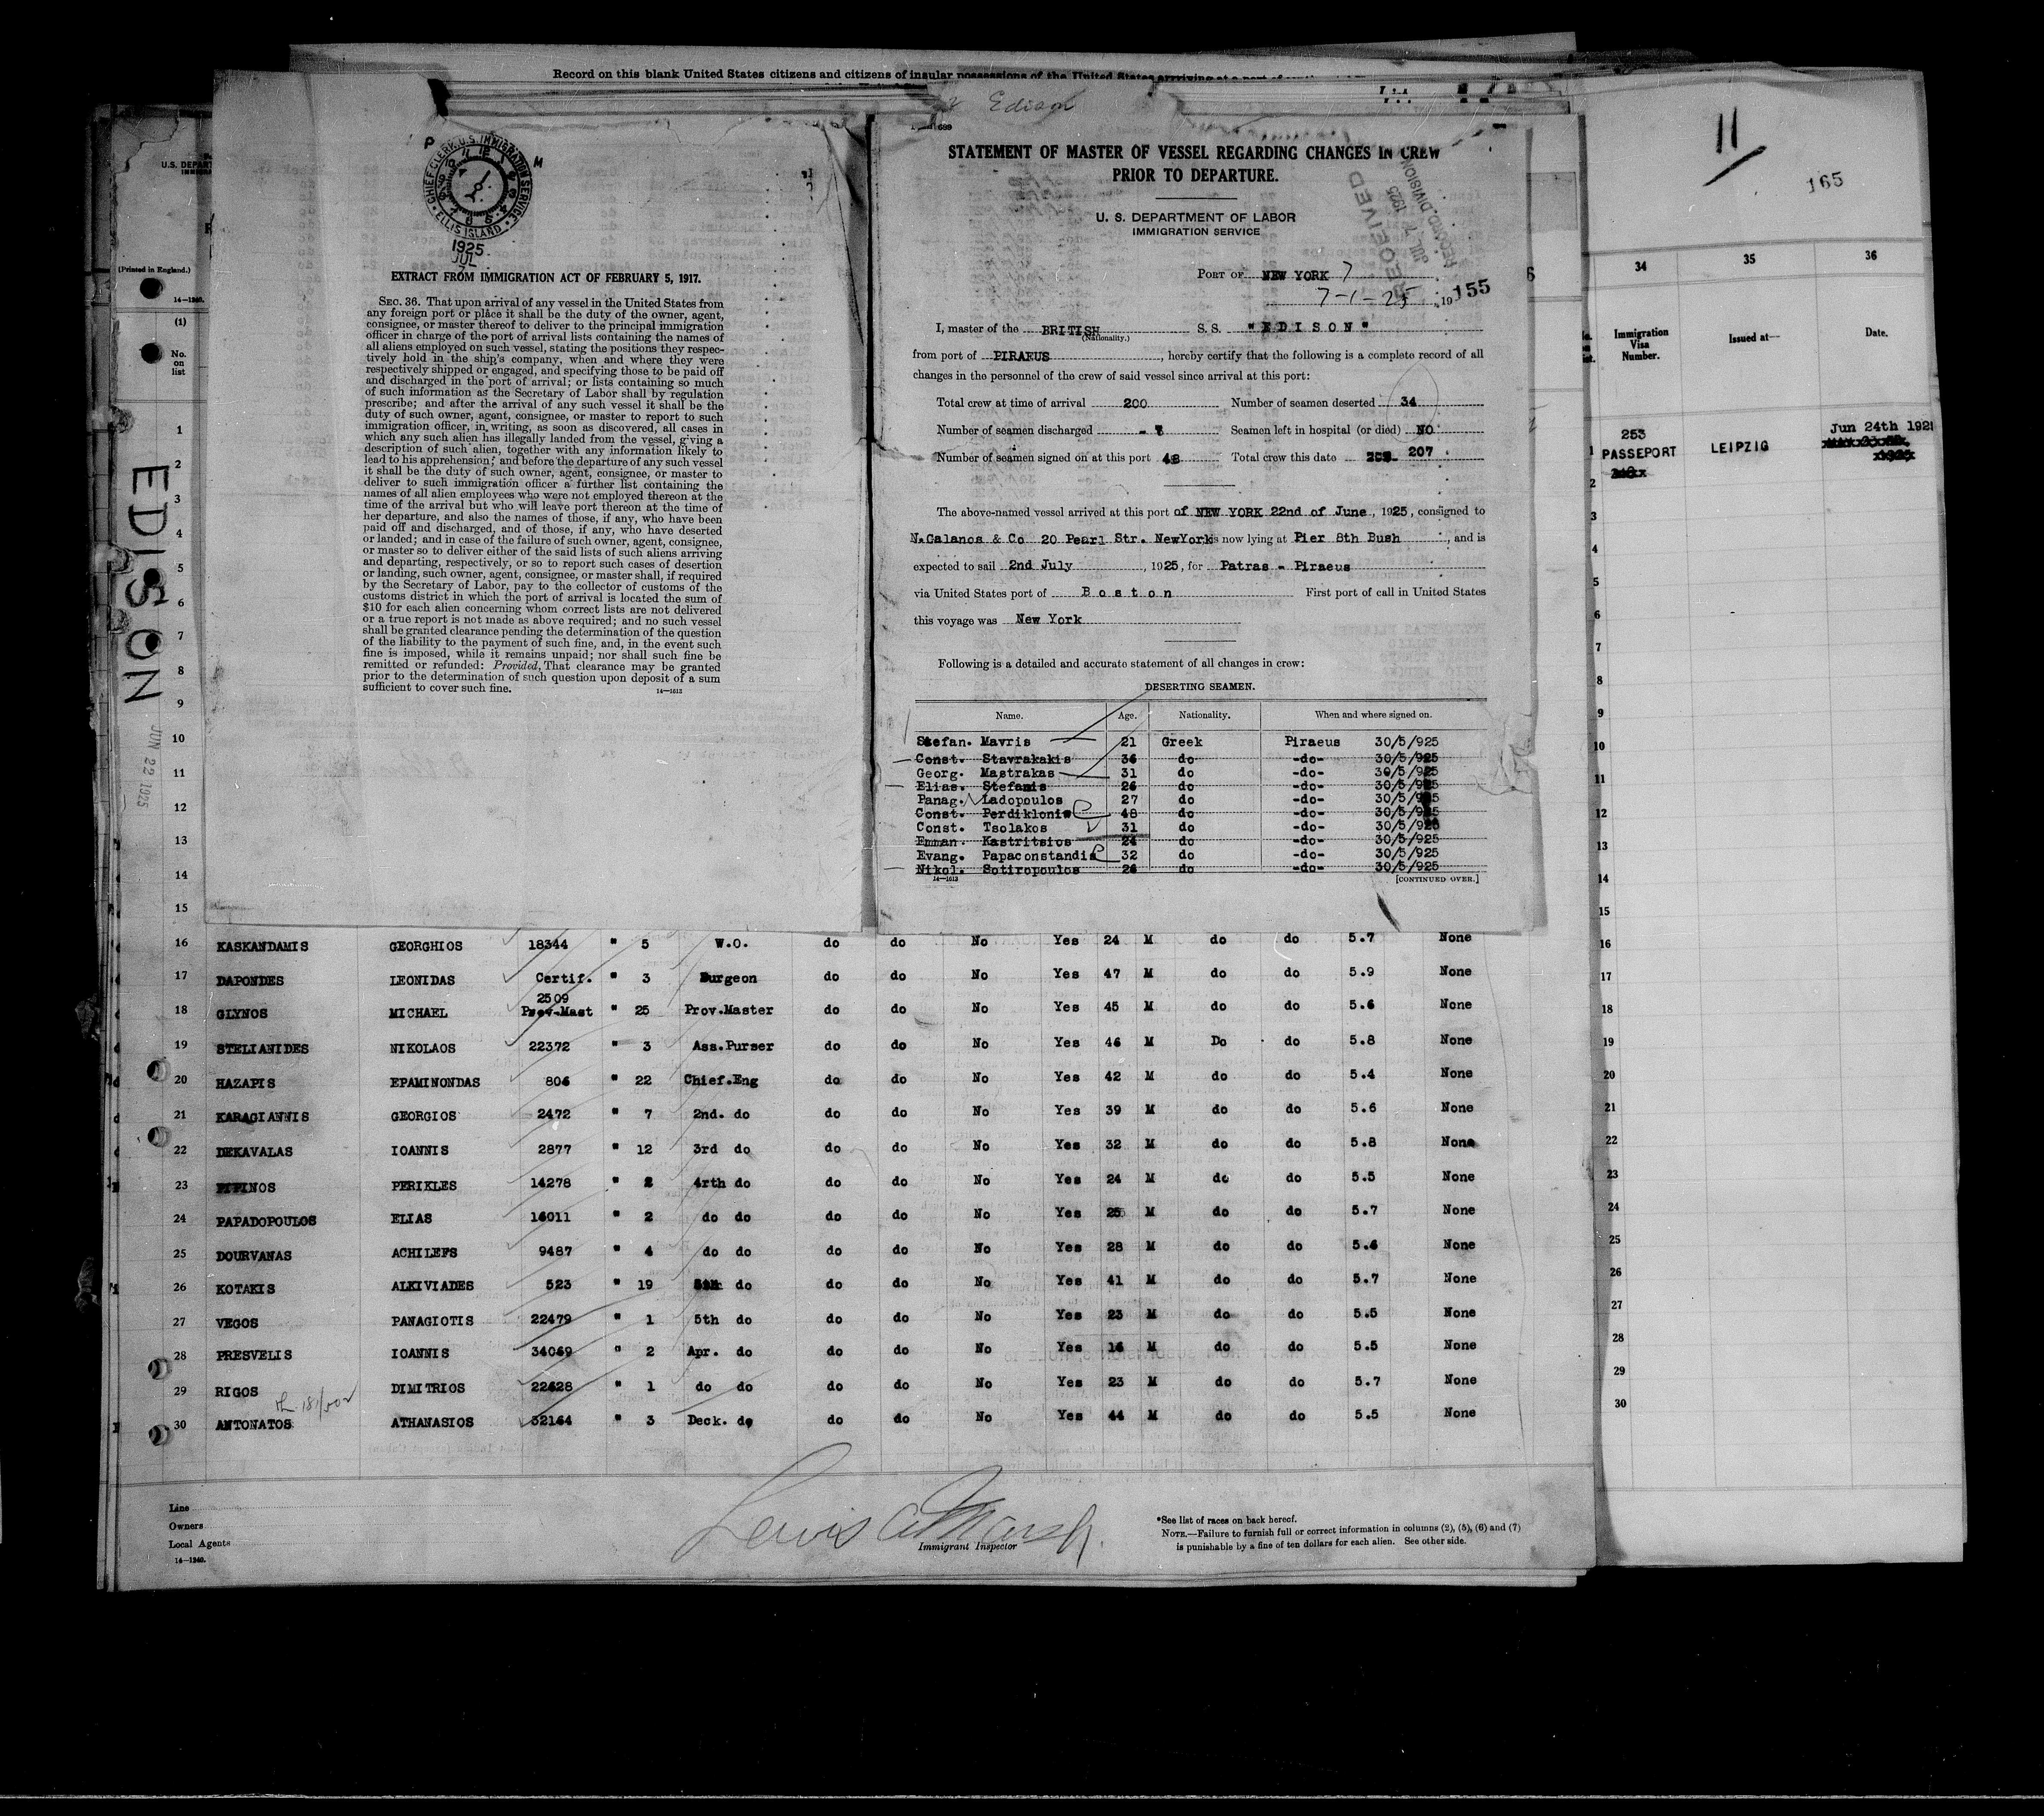 Record on this blank United States citizens and citizens of insular possessions of the United States arriving at a port of
Edison
11
165
EDISON
JUN 22 1925
(Printed in England.)
14—1240.
(1)
No.
on
list
P M
CHIEF CLERK U.S. IMMIGRATION SERVICE
ELLIS ISLAND
1925
JUL
7
EXTRACT FROM IMMIGRATION ACT OF FEBRUARY 5, 1917.
SEC. 36. That upon arrival of any vessel in the United States from
any foreign port or place it shall be the duty of the owner, agent,
consignee, or master thereof to deliver to the principal immigration
officer in charge of the port of arrival lists containing the names of
all aliens employed on such vessel, stating the positions they respec-
tively hold in the ship's company, when and where they were
respectively shipped or engaged, and specifying those to be paid off
and discharged in the port of arrival; or lists containing so much
of such information as the Secretary of Labor shall by regulation
prescribe; and after the arrival of any such vessel it shall be the
duty of such owner, agent, consignee, or master to report to such
immigration officer, in writing, as soon as discovered, all cases in
which any such alien has illegally landed from the vessel, giving a
description of such alien, together with any information likely to
lead to his apprehension; and before the departure of any such vessel
it shall be the duty of such owner, agent, consignee, or master to
deliver to such immigration officer a further list containing the
names of all alien employees who were not employed thereon at the
time of the arrival but who will leave port thereon at the time of
her departure, and also the names of those, if any, who have been
paid off and discharged, and of those, if any, who have deserted
or landed; and in case of the failure of such owner, agent, consignee,
or master so to deliver either of the said lists of such aliens arriving
and departing, respectively, or so to report such cases of desertion
or landing, such owner, agent, consignee, or master shall, if required
by the Secretary of Labor, pay to the collector of customs of the
customs district in which the port of arrival is located the sum of
$10 for each alien concerning whom correct lists are not delivered
or a true report is not made as above required; and no such vessel
shall be granted clearance pending the determination of the question
of the liability to the payment of such fine, and, in the event such
fine is imposed, while it remains unpaid; nor shall such fine be
remitted or refunded: Provided, That clearance may be granted
prior to the determination of such question upon deposit of a sum
sufficient to cover such fine.
14—1613
689
STATEMENT OF MASTER OF VESSEL REGARDING CHANGES IN CREW
PRIOR TO DEPARTURE.
U. S. DEPARTMENT OF LABOR
IMMIGRATION SERVICE
RECEIVED
JUL 7 1925
RECORD DIVISION
PORT OF NEW YORK
7-1-25, 19
155
I, master of the BRITISH S. S. "EDISON"
(Nationality.)
from port of PIRAEUS, hereby certify that the following is a complete record of all
changes in the personnel of the crew of said vessel since arrival at this port:
Total crew at time of arrival 200 Number of seamen deserted 34
Number of seamen discharged - 7 Seamen left in hospital (or died) NO
Number of seamen signed on at this port 48 Total crew this date 207
The above-named vessel arrived at this port of NEW YORK 22nd of June, 1925, consigned to
N.Galanos & Co 20 Pearl Str. NewYork is now lying at Pier 8th Bush, and is
expected to sail 2nd July, 1925, for Patras - Piraeus
via United States port of Boston First port of call in United States
this voyage was New York
Following is a detailed and accurate statement of all changes in crew:
DESERTING SEAMEN.
Name. Age. Nationality. When and where signed on.
Stefan. Mavris 21 Greek Piraeus 30/5/925
Const. Stavrakakis 36 do -do- 30/5/925
Georg. Mastrakas 31 do -do- 30/5/925
Elias. Stefanis 26 do -do- 30/5/925
Panag. Ladopoulos 27 do -do- 30/5/925
Const. Perdiklonis 48 do -do- 30/5/925
Const. Tsolakos 31 do -do- 30/5/925
Emman. Kastritsios 24 do -do- 30/5/925
Evang. Papaconstandis 32 do -do- 30/5/925
Nikol. Sotiropoulos 26 do -do- 30/5/925
14—1613 [CONTINUED OVER.]
34 35 36
Immigration Visa Number. Issued at— Date.
1 253 PASSEPORT LEIPZIG Jun 24th 192
1
2
3
4
5
6
7
8
9
10
11
12
13
14
15
16 KASKANDAMIS GEORGHIOS 18344 " 5 W.O. do do No Yes 24 M do do 5.7 None
17 DAPONDES LEONIDAS Certif. " 3 Surgeon do do No Yes 47 M do do 5.9 None
18 GLYNOS MICHAEL 2509 Prov-Mast " 25 Prov.Master do do No Yes 45 M do do 5.6 None
19 STELIANIDES NIKOLAOS 22372 " 3 Ass.Purser do do No Yes 46 M Do do 5.8 None
20 HAZAPIS EPAMINONDAS 806 " 22 Chief.Eng do do No Yes 42 M do do 5.4 None
21 KARAGIANNIS GEORGIOS 2472 " 7 2nd. do do do No Yes 39 M do do 5.6 None
22 DEKAVALAS IOANNIS 2877 " 12 3rd do do do No Yes 32 M do do 5.8 None
23 PIPINOS PERIKLES 14278 " 2 4rth do do do No Yes 24 M do do 5.5 None
24 PAPADOPOULOS ELIAS 16011 " 2 do do do do No Yes 25 M do do 5.7 None
25 DOURVANAS ACHILEFS 9487 " 4 do do do do No Yes 28 M do do 5.6 None
26 KOTAKIS ALKIVIADES 523 " 19 5th do do do No Yes 41 M do do 5.7 None
27 VEGOS PANAGIOTIS 22479 " 1 5th do do do No Yes 23 M do do 5.5 None
28 PRESVELIS IOANNIS 34069 " 2 Apr. do do do No Yes 16 M do do 5.5 None
29 RIGOS DIMITRIOS 22628 " 1 do do do do No Yes 23 M do do 5.7 None
30 ANTONATOS ATHANASIOS 32164 " 3 Deck. do do do No Yes 44 M do do 5.5 None
Line
Owners
Local Agents
14—1240.
Lewis A. Marsh
Immigrant Inspector
*See list of races on back hereof.
NOTE.—Failure to furnish full or correct information in columns (2), (5), (6) and (7)
is punishable by a fine of ten dollars for each alien. See other side.